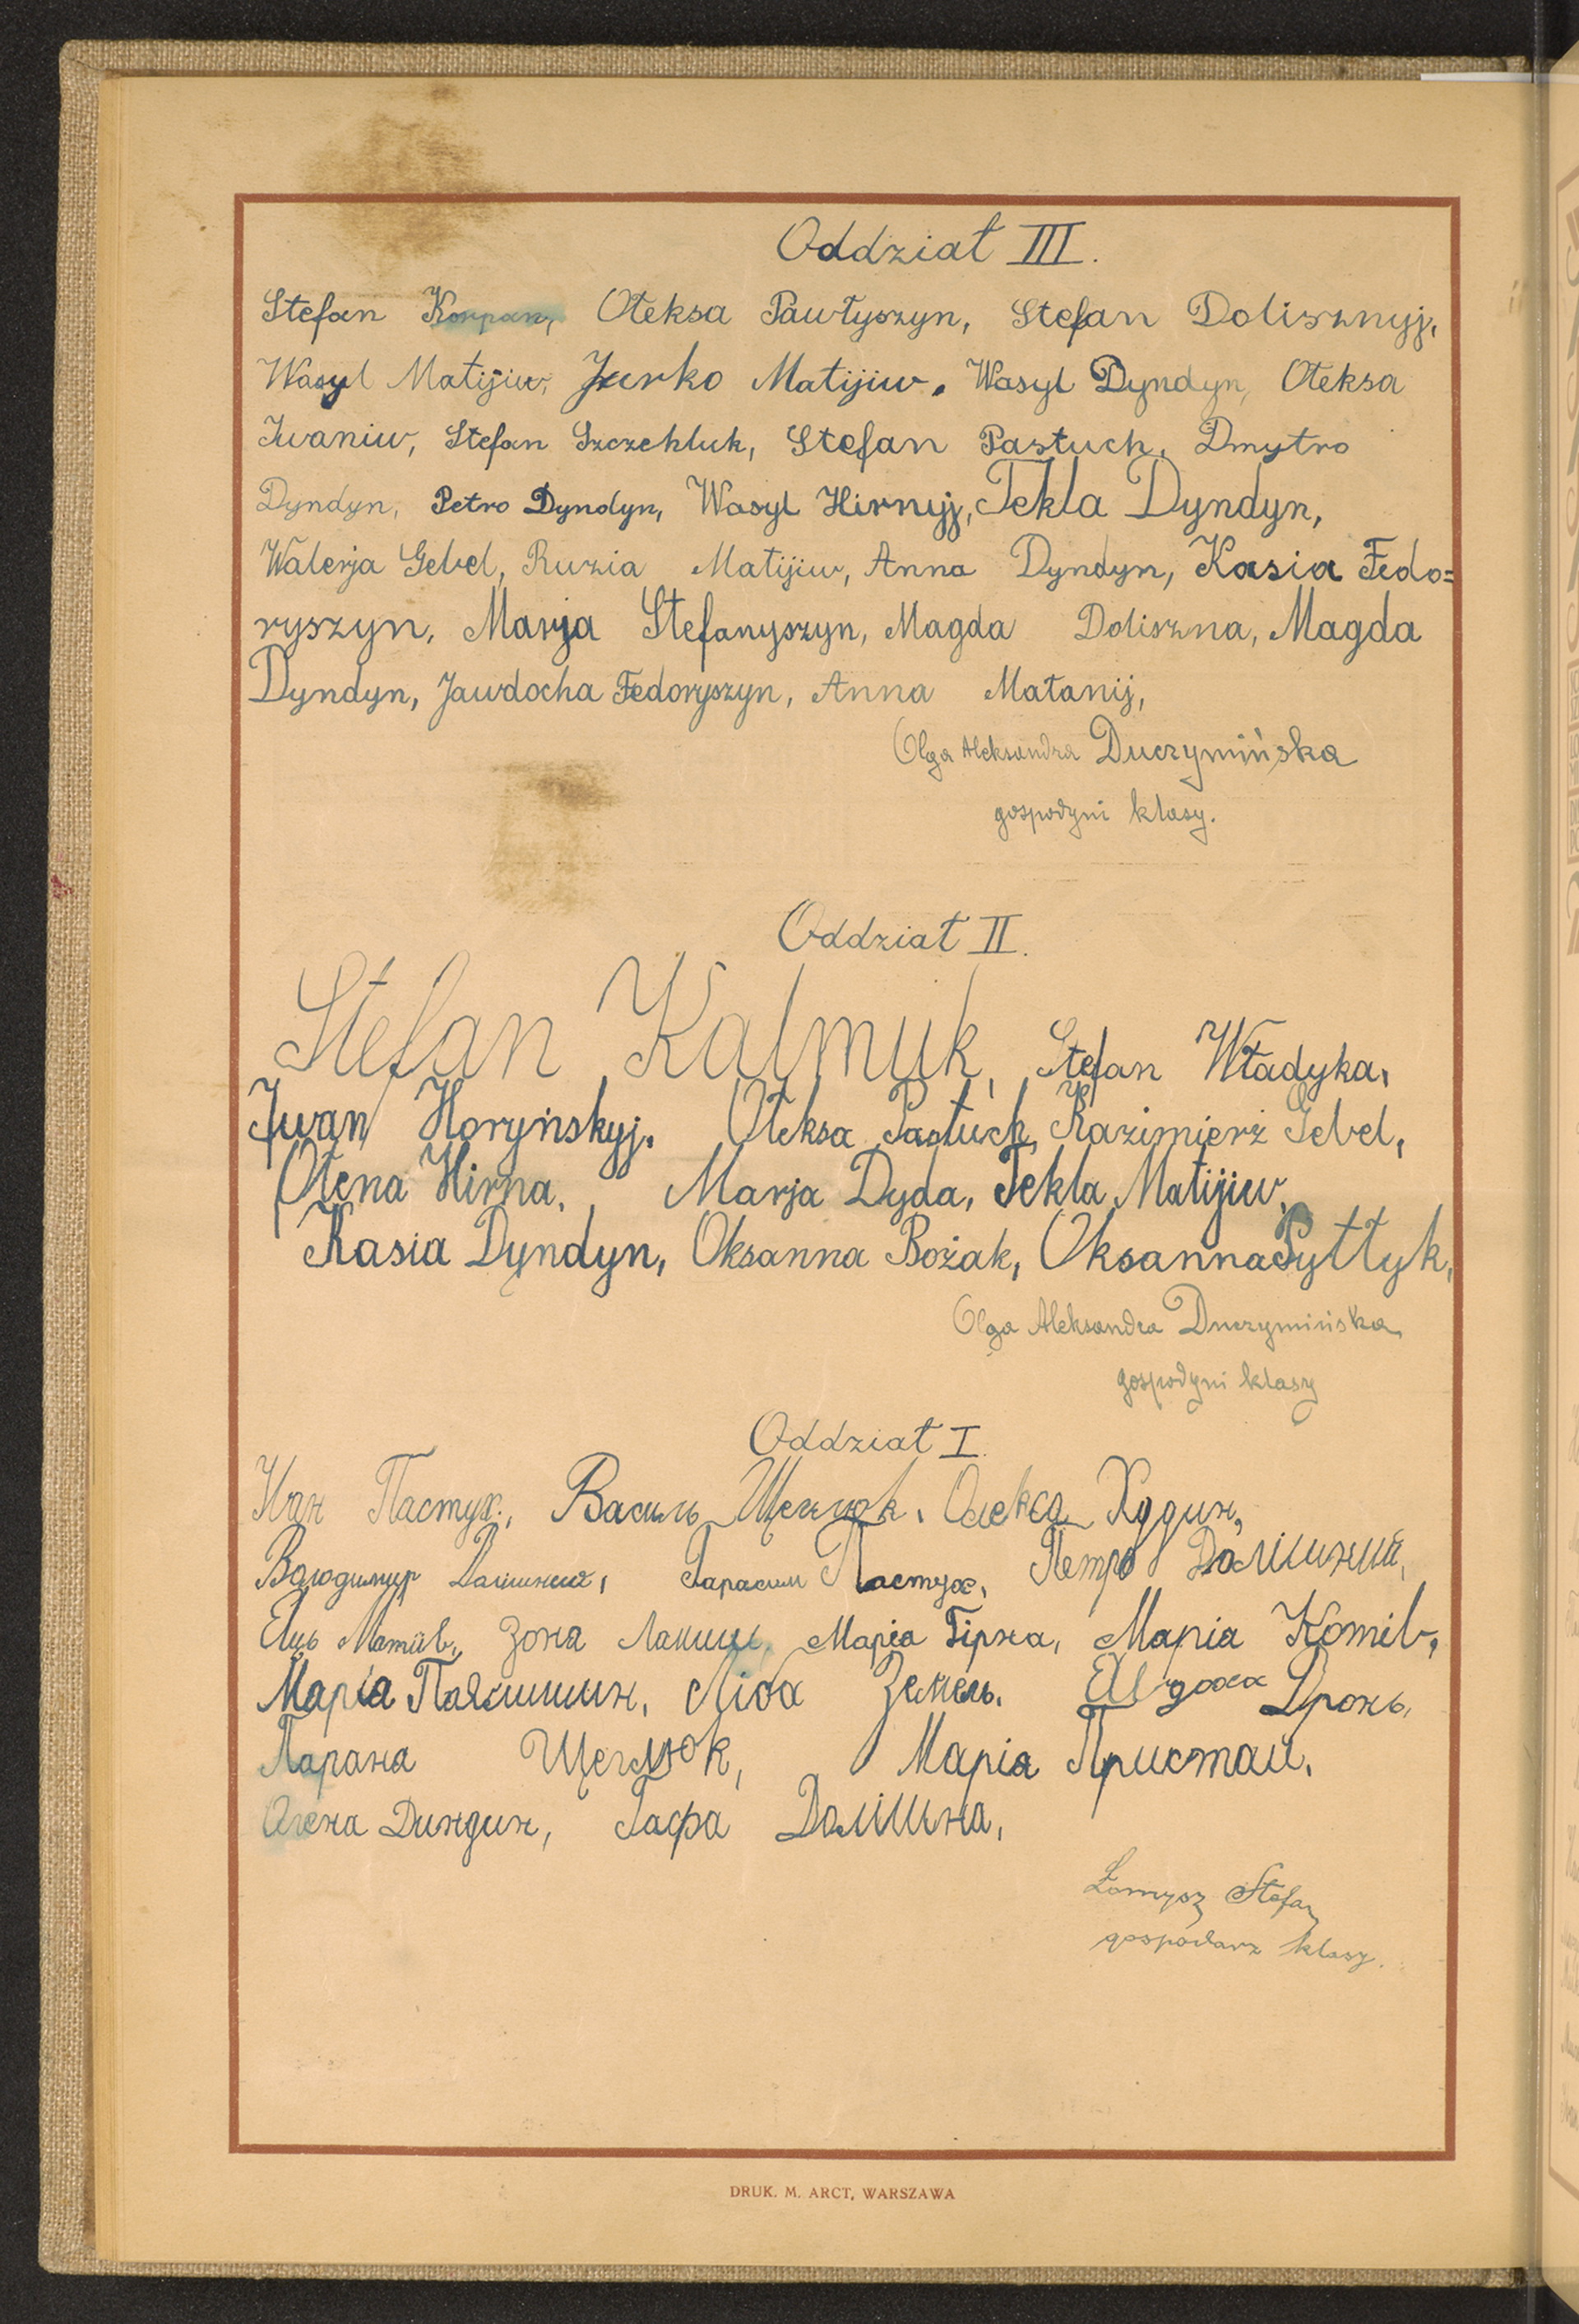 Oddział III.
Stefan Korpan, Ołeksa Pawłyszyn, Stefan Dolisznyj,
Wasyl Matijiw, Jurko Matijiw, Wasyl Dyndyn, Ołeksa
Iwaniw, Stefan Szczehluk, Stefan Pastuch, Dmytro
Dyndyn, Petro Dyndyn, Wasyl Hirnyj, Tekla Dyndyn,
Walerja Gebel, Ruzia Matijiw, Anna Dyndyn, Kasia Fedo=
ryszyn, Marja Stefanyszyn, Magda Doliszna, Magda
Dyndyn, Jawdocha Fedoryszyn, Anna Małanij,
Olga Aleksandra Duczymińska
gospodyni klasy.
Oddział II.
Stefan Kalmuk, Stefan Władyka,
Iwan Horyńskyj. Ołeksa Pastuch, Kazimierz Gebel,
Ołena Hirna, Marja Dyda, Tekla Matijiw,
Kasia Dyndyn, Oksanna Bożak, Oksanna Pyłtyk,
Olga Aleksandra Duczymińska
gospodyni klasy
Oddział I.
Іван Пастух, Василь Щеглюк. Олекса
Володимир Долішний, Гарасим Пастух, Петро Долішний,
Матіїв, Зоня Марія Гірна, Марія Котів,
Марія Павлишин, Земель. Евдоха Дронь,
Парана Щеглюк, Марія Пристай.
Олена Диндин, Гафа Долішна,
Łomysz Stefan
gospodarz klasy.
DRUK. M. ARCT, WARSZAWA